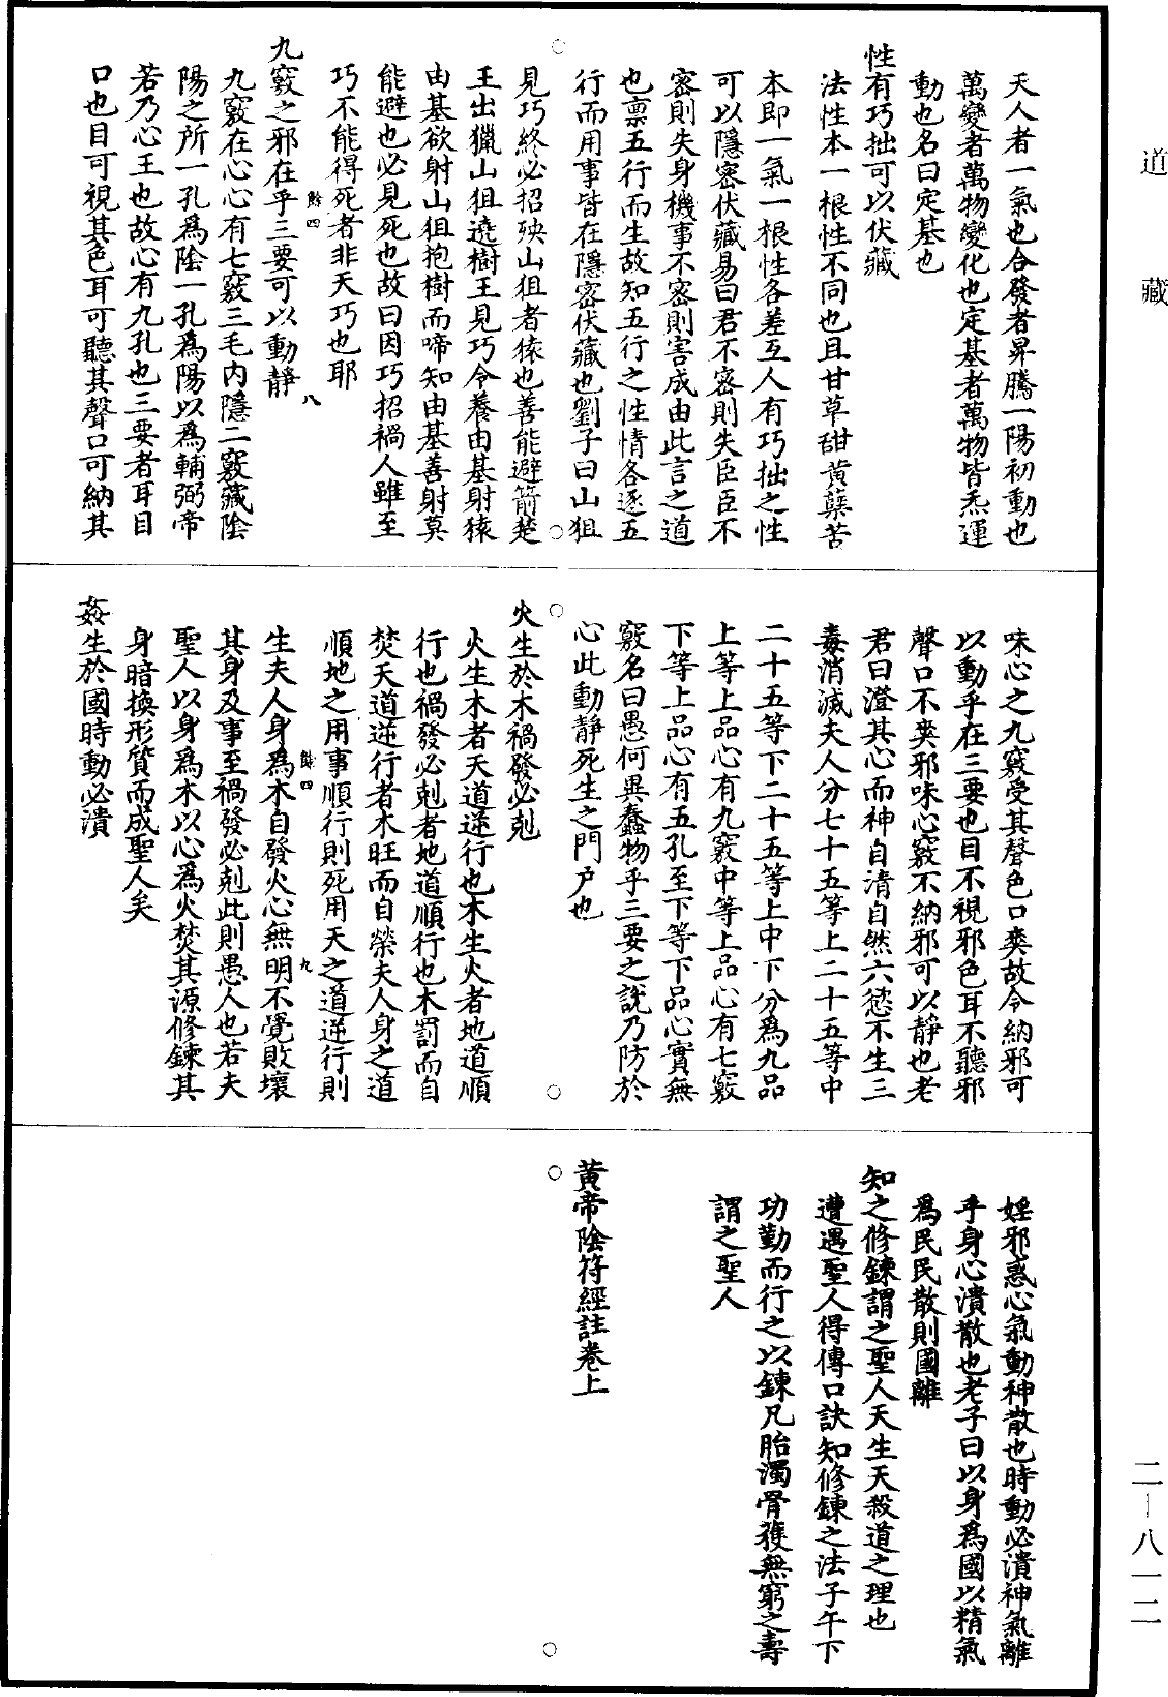 道藏
天人者一氣也合發者昇騰一陽初動也
萬變者萬物變化也定基者萬物皆炁運
動也名曰定基也
性有巧拙可以伏藏
法性本一根性不同也且甘草甜黄蘗苦
本即一氣一根性各差互人有巧拙之性
可以隱密伏藏易曰君不密則失臣臣不
密則失身機事不密則害成由此言之道
也稟五行而生故知五行之性情各逐五
行而用事皆在隱密伏藏也劉子曰山狙
見巧終必招殃山狙者猿也善能避箭楚
王出獵山狙遶樹王見巧令養由基射猿
由基欲射山狙抱樹而啼知由基善射莫
能避也必見死也故曰因巧招禍人雖至
巧不能得死者非天巧也耶
餘四
八
九竅之邪在乎三要可以動靜
九竅在心心有七竅三毛内隱二竅藏陰
陽之所一孔爲陰一孔爲陽以爲輔弼帝
若乃心王也故心有九孔也三要者耳目
口也目可視其色耳可聽其聲口可納其
味心之九竅受其聲色口爽故令納邪可
以動乎在三要也目不視邪色耳不聽邪
聲口不爽邪味心竅不納邪可以靜也老
君曰澄其心而神自清自然六慾不生三
毒消滅夫人分七十五等上二十五等中
二十五等下二十五等上中下分爲九品
上等上品心有九竅中等上品心有七竅
下等上品心有五孔至下等下品心實無
竅名曰愚何異蠢物乎三要之說乃防於
心此動靜死生之門户也
火生於木禍發必剋
火生木者天道逆行也木生火者地道順
行也禍發必剋者地道順行也木罰而自
焚天道逆行者木旺而自榮夫人身之道
順地之用事順行則死用天之道逆行則
餘四
九
生夫人身爲木自發火心無明不覺敗壞
其身及事至禍發必剋此則愚人也若夫
聖人以身爲木以心爲火焚其源修鍊其
身暗換形質而成聖人矣
姦生於國時動必潰
婬邪惑心氣動神散也時動必潰神氣離
乎身心潰散也老子曰以身爲國以精氣
爲民民散則國離
知之修鍊謂之聖人天生天殺道之理也
遭遇聖人得傳口訣知修鍊之法子午下
功勤而行之以鍊凡胎濁骨獲無窮之壽
謂之聖人
黃帝陰符經註卷上
二－八一二